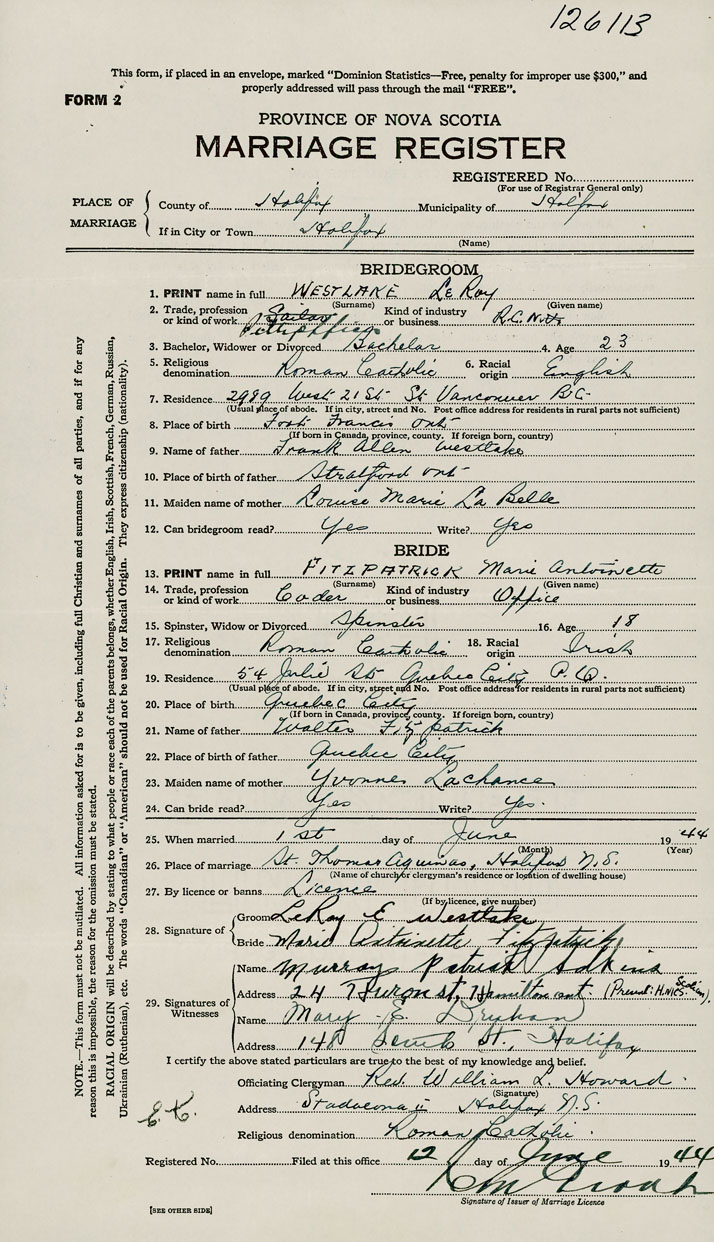 126113
This form, if placed in an envelope, marked "Dominion Statistics—Free, penalty for improper use $300," and
properly addressed will pass through the mail "FREE".
FORM 2
PROVINCE OF NOVA SCOTIA
MARRIAGE REGISTER
REGISTERED No.
(For use of Registrar General only)
PLACE OF MARRIAGE
County of Halifax Municipality of Halifax
If in City or Town Halifax
(Name)
BRIDEGROOM
1. PRINT name in full WESTLAKE LeRoy
(Surname) (Given name)
2. Trade, profession or kind of work Sailor Petty Officer Kind of industry or business R.C.N.
3. Bachelor, Widower or Divorced Bachelor 4. Age 23
5. Religious denomination Roman Catholic 6. Racial origin English
7. Residence 2989 West 21 St. St Vancouver B.C.
(Usual place of abode. If in city, street and No. Post office address for residents in rural parts not sufficient)
8. Place of birth Fort Francis Ont
(If born in Canada, province, county. If foreign born, country)
9. Name of father Frank Allen Westlake
10. Place of birth of father Stratford Ont
11. Maiden name of mother Louise Marie La Belle
12. Can bridegroom read? Yes Write? Yes
BRIDE
13. PRINT name in full FITZPATRICK Marie Antoinette
(Surname) (Given name)
14. Trade, profession or kind of work Coder Kind of industry or business Office
15. Spinster, Widow or Divorced Spinster 16. Age 18
17. Religious denomination Roman Catholic 18. Racial origin Irish
19. Residence 54 Julie St Quebec City P.Q.
(Usual place of abode. If in city, street and No. Post office address for residents in rural parts not sufficient)
20. Place of birth Quebec City
(If born in Canada, province, county. If foreign born, country)
21. Name of father Walter Fitzpatrick
22. Place of birth of father Quebec City
23. Maiden name of mother Yvonne Lachance
24. Can bride read? Yes Write? Yes.
25. When married 1st day of June 1944
(Month) (Year)
26. Place of marriage St. Thomas Aquinas, Halifax N.S.
(Name of church or clergyman's residence or location of dwelling house)
27. By licence or banns Licence
(If by licence, give number)
28. Signature of
Groom LeRoy E Westlake
Bride Marie Antoinette Fitzpatrick
29. Signatures of Witnesses
Name Murray Patrick Adkins
Address 24 Huron St, Hamilton Ont. (Present: H.M.C.S.
Name Mary E.
Address 148 St., Halifax
I certify the above stated particulars are true to the best of my knowledge and belief.
Officiating Clergyman Rev. William L. Howard
(Signature)
Address Stadacona Halifax N.S.
Religious denomination Roman Catholic.
Registered No. Filed at this office 12 day of June 1944
Signature of Issuer of Marriage Licence
[SEE OTHER SIDE]
NOTE.—This form must not be mutilated. All information asked for is to be given, including full Christian and surnames of all parties, and if for any
reason this is impossible, the reason for the omission must be stated.
RACIAL ORIGIN will be described by stating to what people or race each of the parents belongs, whether English, Irish, Scottish, French, German, Russian,
Ukrainian (Ruthenian), etc. The words "Canadian" or "American" should not be used for Racial Origin. They express citizenship (nationality).